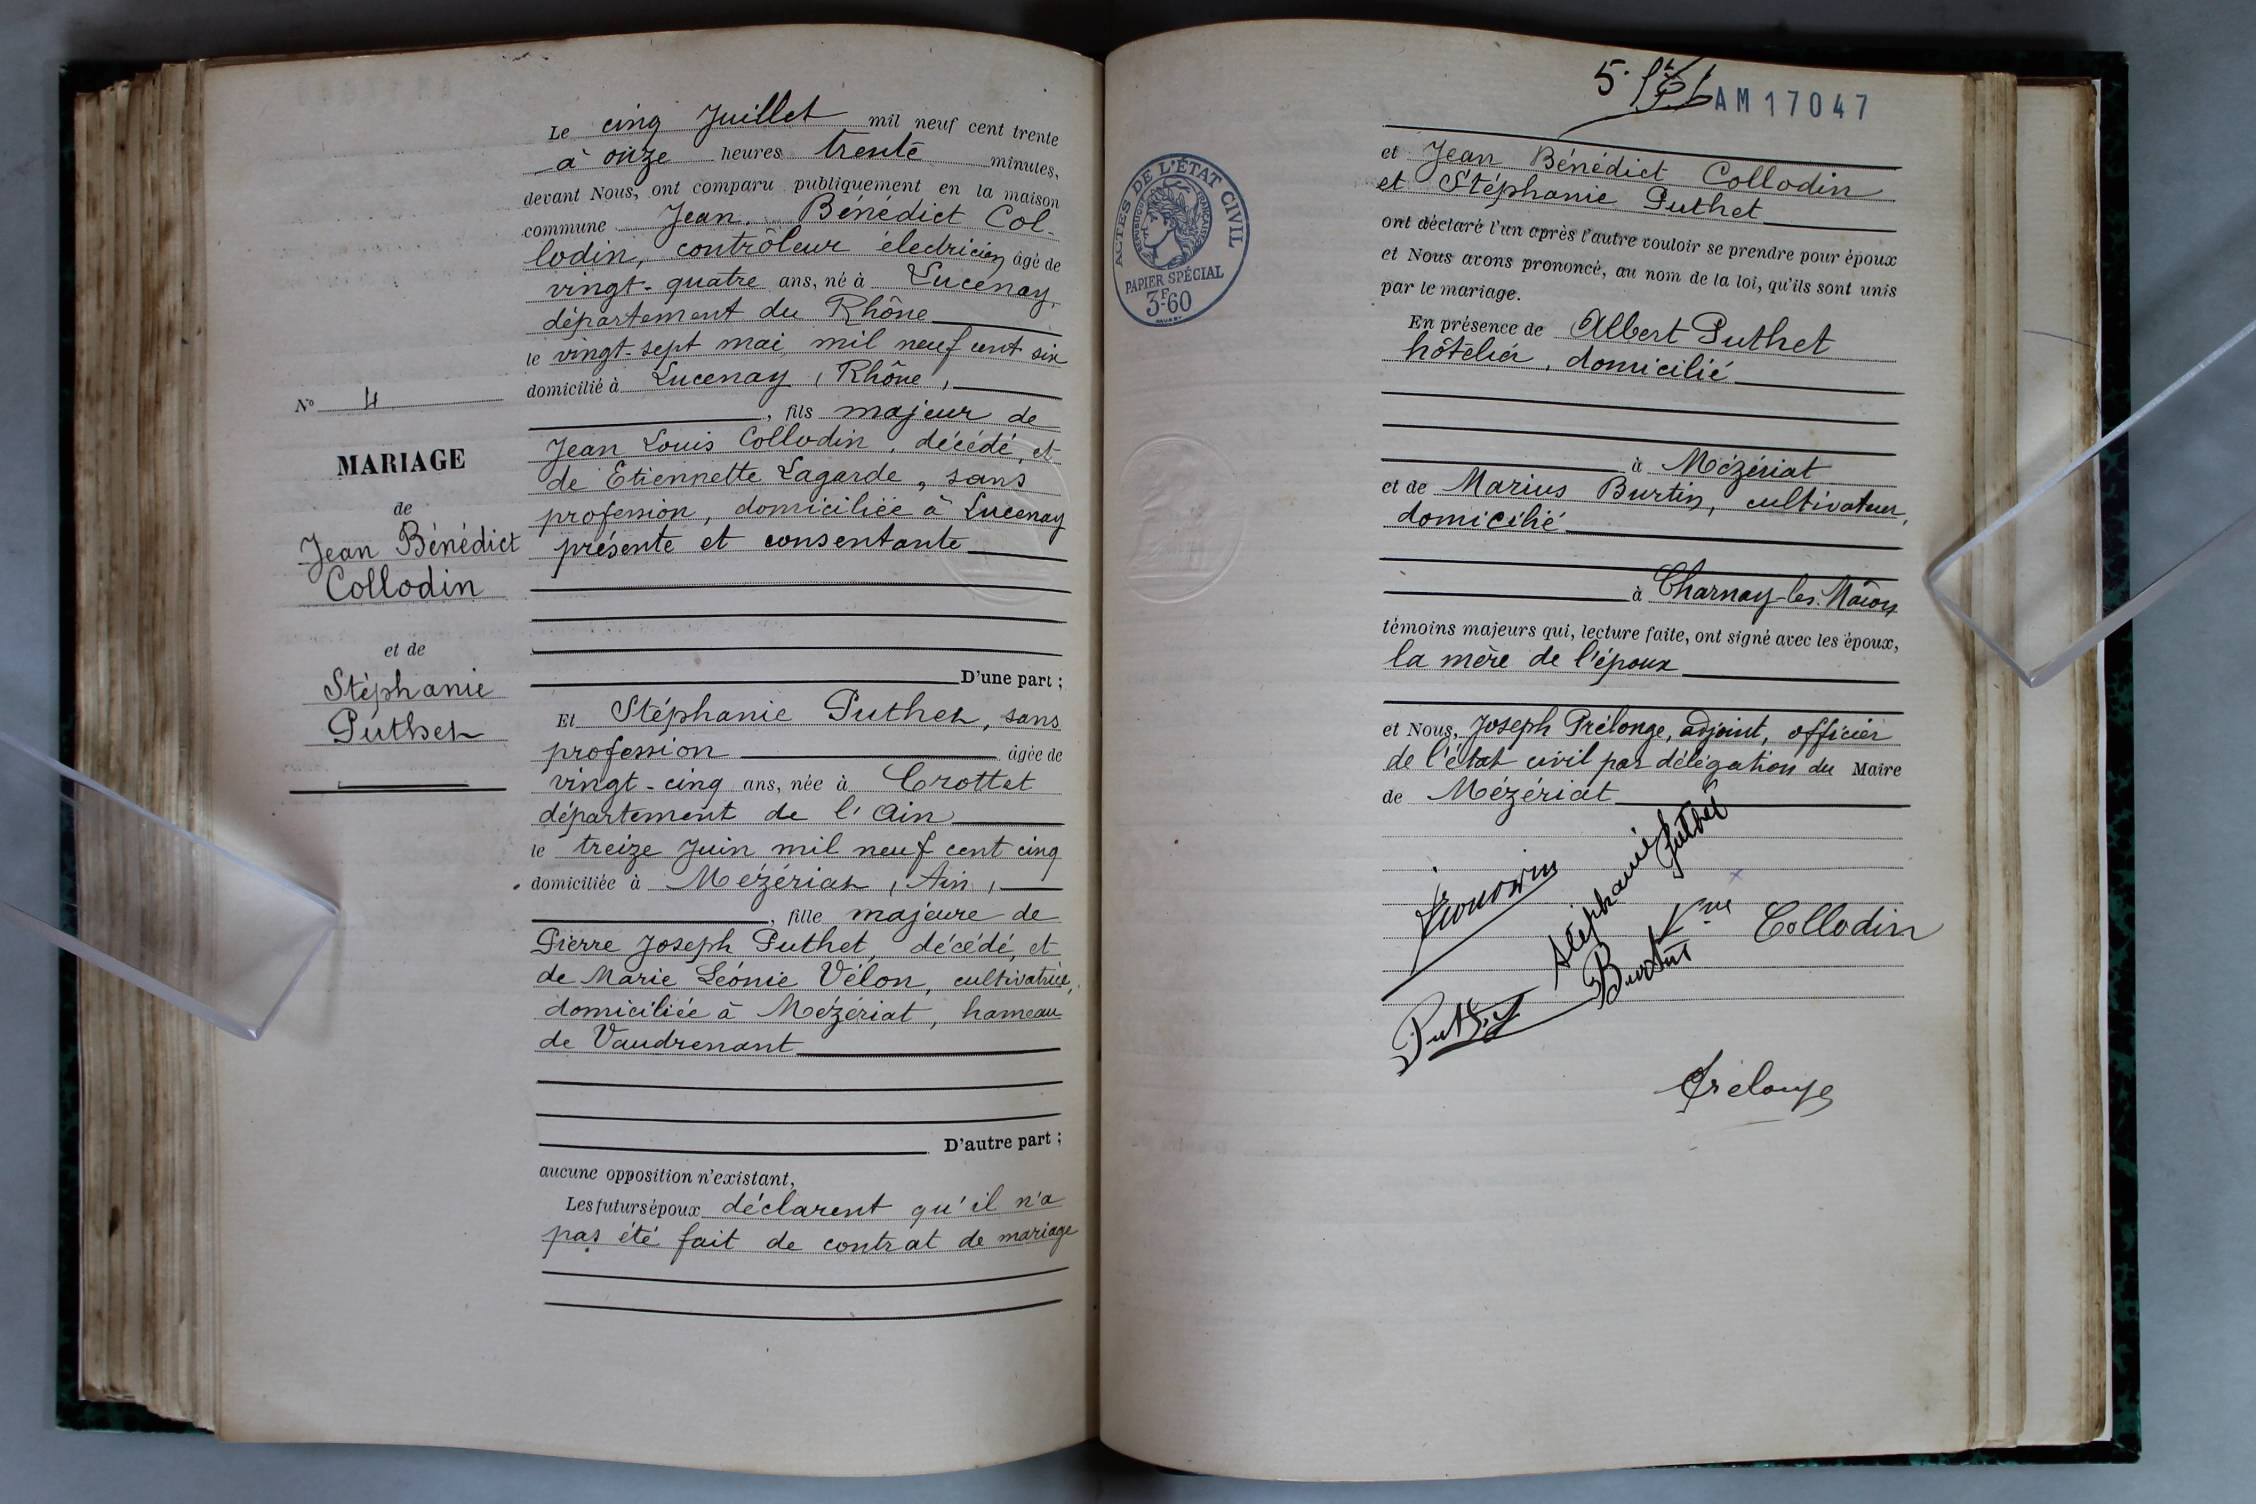 Le cinq Juillet mil neuf cent trente
à onze heures trente minutes,
devant Nous, ont comparu publiquement en la maison
commune Jean Bénédict Col-
lodin, contrôleur électricien âgé de
vingt-quatre ans, né à Lucenay,
département du Rhône
le vingt-sept mai mil neuf cent six
domicilié à Lucenay, Rhône,
, fils majeur de
Jean Louis Collodin, décédé, et
de Etiennette Lagarde, sans
profession, domiciliée à Lucenay
présente et consentante
D'une part ;
Et Stéphanie Puthet, sans
profession âgée de
vingt-cinq ans, née à Crottet
département de l'Ain
le treize Juin mil neuf cent cinq
domiciliée à Mézériat, Ain,
, fille majeure de
Pierre Joseph Puthet, décédé, et
de Marie Léonie Vélon, cultivatrice,
domiciliée à Mézériat, hameau
de Vaudrenant
D'autre part ;
aucune opposition n'existant,
Les futurs époux déclarent qu'il n'a
pas été fait de contrat de mariage
N° 4
MARIAGE
de
Jean Bénédict
Collodin
et de
Stéphanie
Puthet
5.
AM17047
ACTES DE L'ÉTAT CIVIL
RÉPUBLIQUE FRANÇAISE
PAPIER SPÉCIAL
3F60
et Jean Bénédict Collodin
et Stéphanie Puthet
ont déclaré l'un après l'autre vouloir se prendre pour époux
et Nous avons prononcé, au nom de la loi, qu'ils sont unis
par le mariage.
En présence de Albert Puthet
hôtelier, domicilié
à Mézériat
et de Marius Burtin, cultivateur,
domicilié
à Charnay-les-Mâcon
témoins majeurs qui, lecture faite, ont signé avec les époux,
la mère de l'époux
et Nous, Joseph Prélonge, adjoint, officier
de l'état civil par délégation du Maire
de Mézériat
Stéphanie Puthet
Vve Collodin
Burtin
Puthet
Prélonge